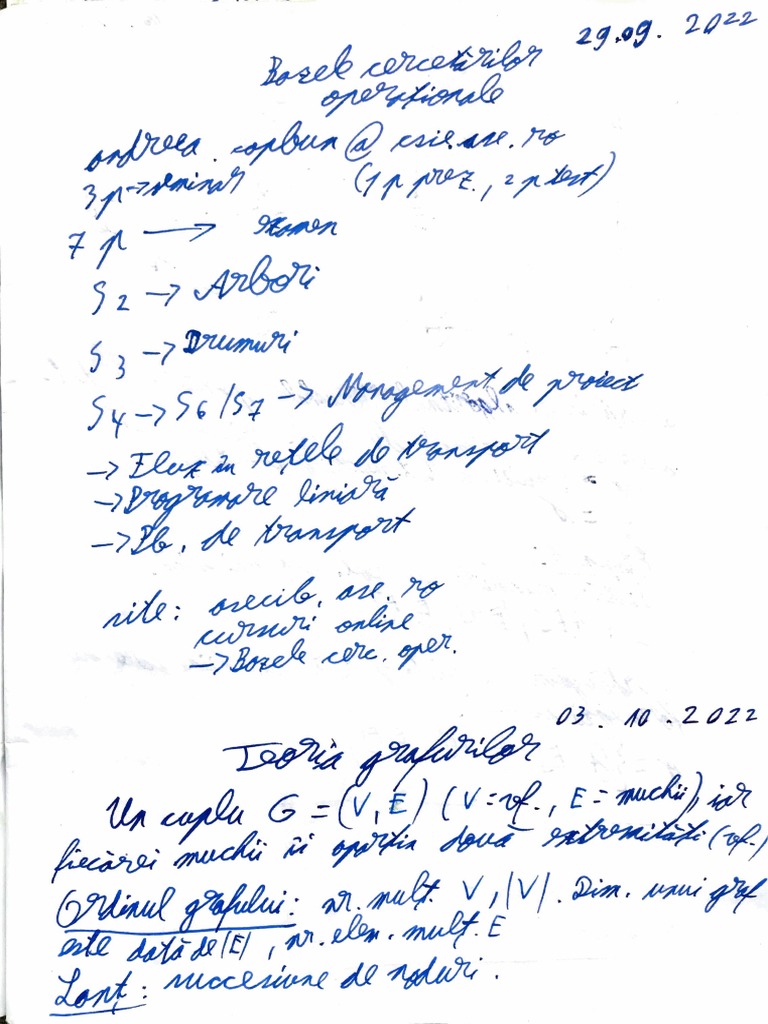 29.09. 2022
Bazele cercetărilor
operaționale
andreea. @ csie.ase.ro
3p → seminar (1 p prez., 2 p test)
7 p → examen
S2 → Arbori
S3 → Drumuri
S4 → S6 / S7 → Management de proiect
→ Flux în rețele de transport
→ Programare liniară
→ Pb. de transport
site: asecib.ase.ro
cursuri online
→ Bazele cerc. oper.
03. 10. 2022
Teoria grafurilor
Un cuplu G = (V, E) (V = vf., E = muchii), iar
fiecărei muchii îi aparțin două extremități (vf.)
Ordinul grafului: nr. mulț. V, |V|. Dim. unui graf
este dată de |E|, nr. elem. mulț. E
Lanț: succesiune de noduri.